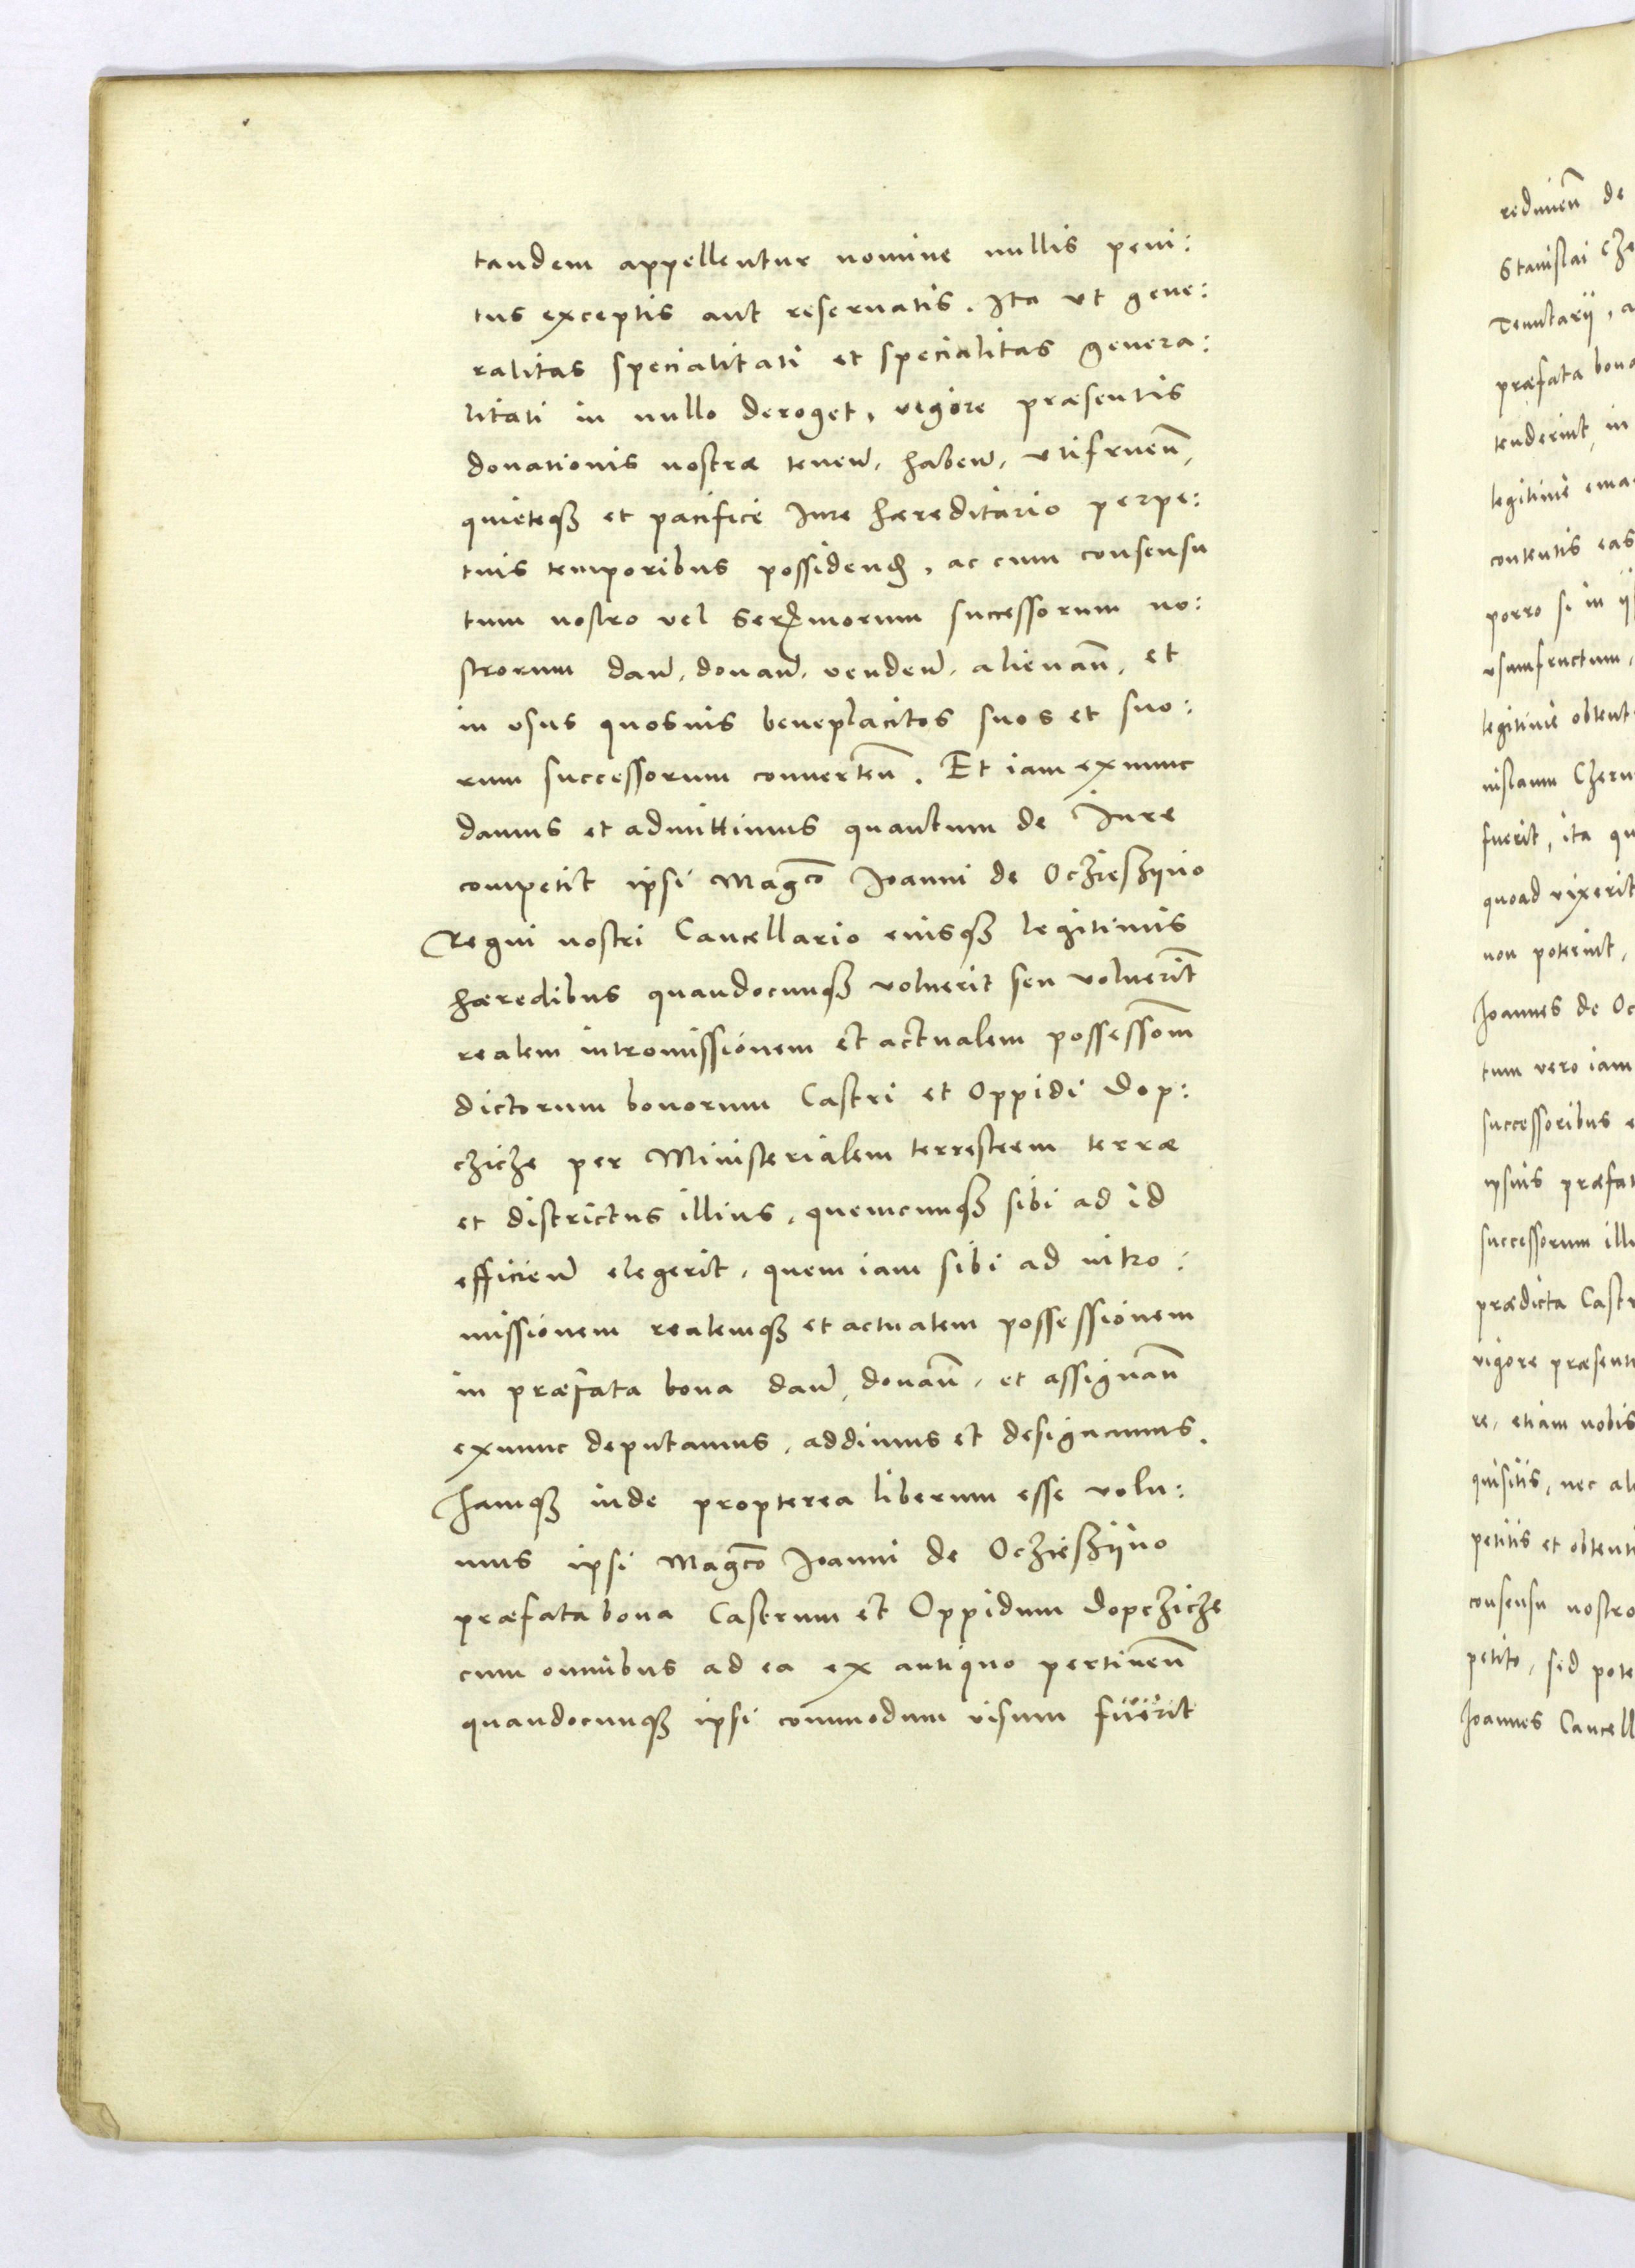 tandem appellentur nomine nullis peni:
tus exceptis aut reseruatis. Ita vt gene:
ralitas specialitati et specialitas genera:
litati in nullo deroget, vigore præsentis
donationis nostræ tenen̄. haben̄. vtifruen̄,
quieteqꝫ et pacifice Iure hæreditario perpe:
tuis temporibus possidenđ. ac cum consensu
tum nostro vel Serᵐorum successorum no:
strorum dan̄. donan̄. venden̄. alienan̄. et
in vsus quosuis beneplacitos suos et suo:
rum successorum conuerten̄. Et iam exnunc
damus et admittimus quantum de Iure
competit ipsi Magc̄o Joanni de Oczieszijno
Regni nostri Cancellario eiusqꝫ legitimis
hæredibus quandocunqꝫ voluerit seu voluerint
realem intromissionem et actualem possessiōm
dictorum bonorum Castri et Oppidi Dop:
cziche per Ministerialem terrestrem terræ
et districtus illius, quemcunqꝫ sibi ad id
efficien̄ elegerit, quem iam sibi ad intro:
missionem realemqꝫ et actualem possessionem
in præfata bona dan̄, donan̄, et assignan̄
exnunc deputamus, addimus et designamus.
Iamqꝫ inde propterea liberum esse volu:
mus ipsi Magc̄o Joanni de Oczieszijno
præfata bona Castrum et Oppidum Dopcziche
cum omnibus ad ea ex antiquo pertinen̄
quandocunqꝫ ipsi commodum visum fuerit
redimen̄ de
Stanislai
Tenutarij,
præfata bona
tenderint, in
legitime
contentis eas
porro si in
vsumfructum,
legitime
nislaum
fuerit, ita
quoad vixerit
non poterint,
Joannes de
tum vero iam
successoribus
ipsius
successorum
prædicta
vigore
re, etiam nobis
quisitis, nec
petitis et
consensu nostro
petito, sed
Joannes